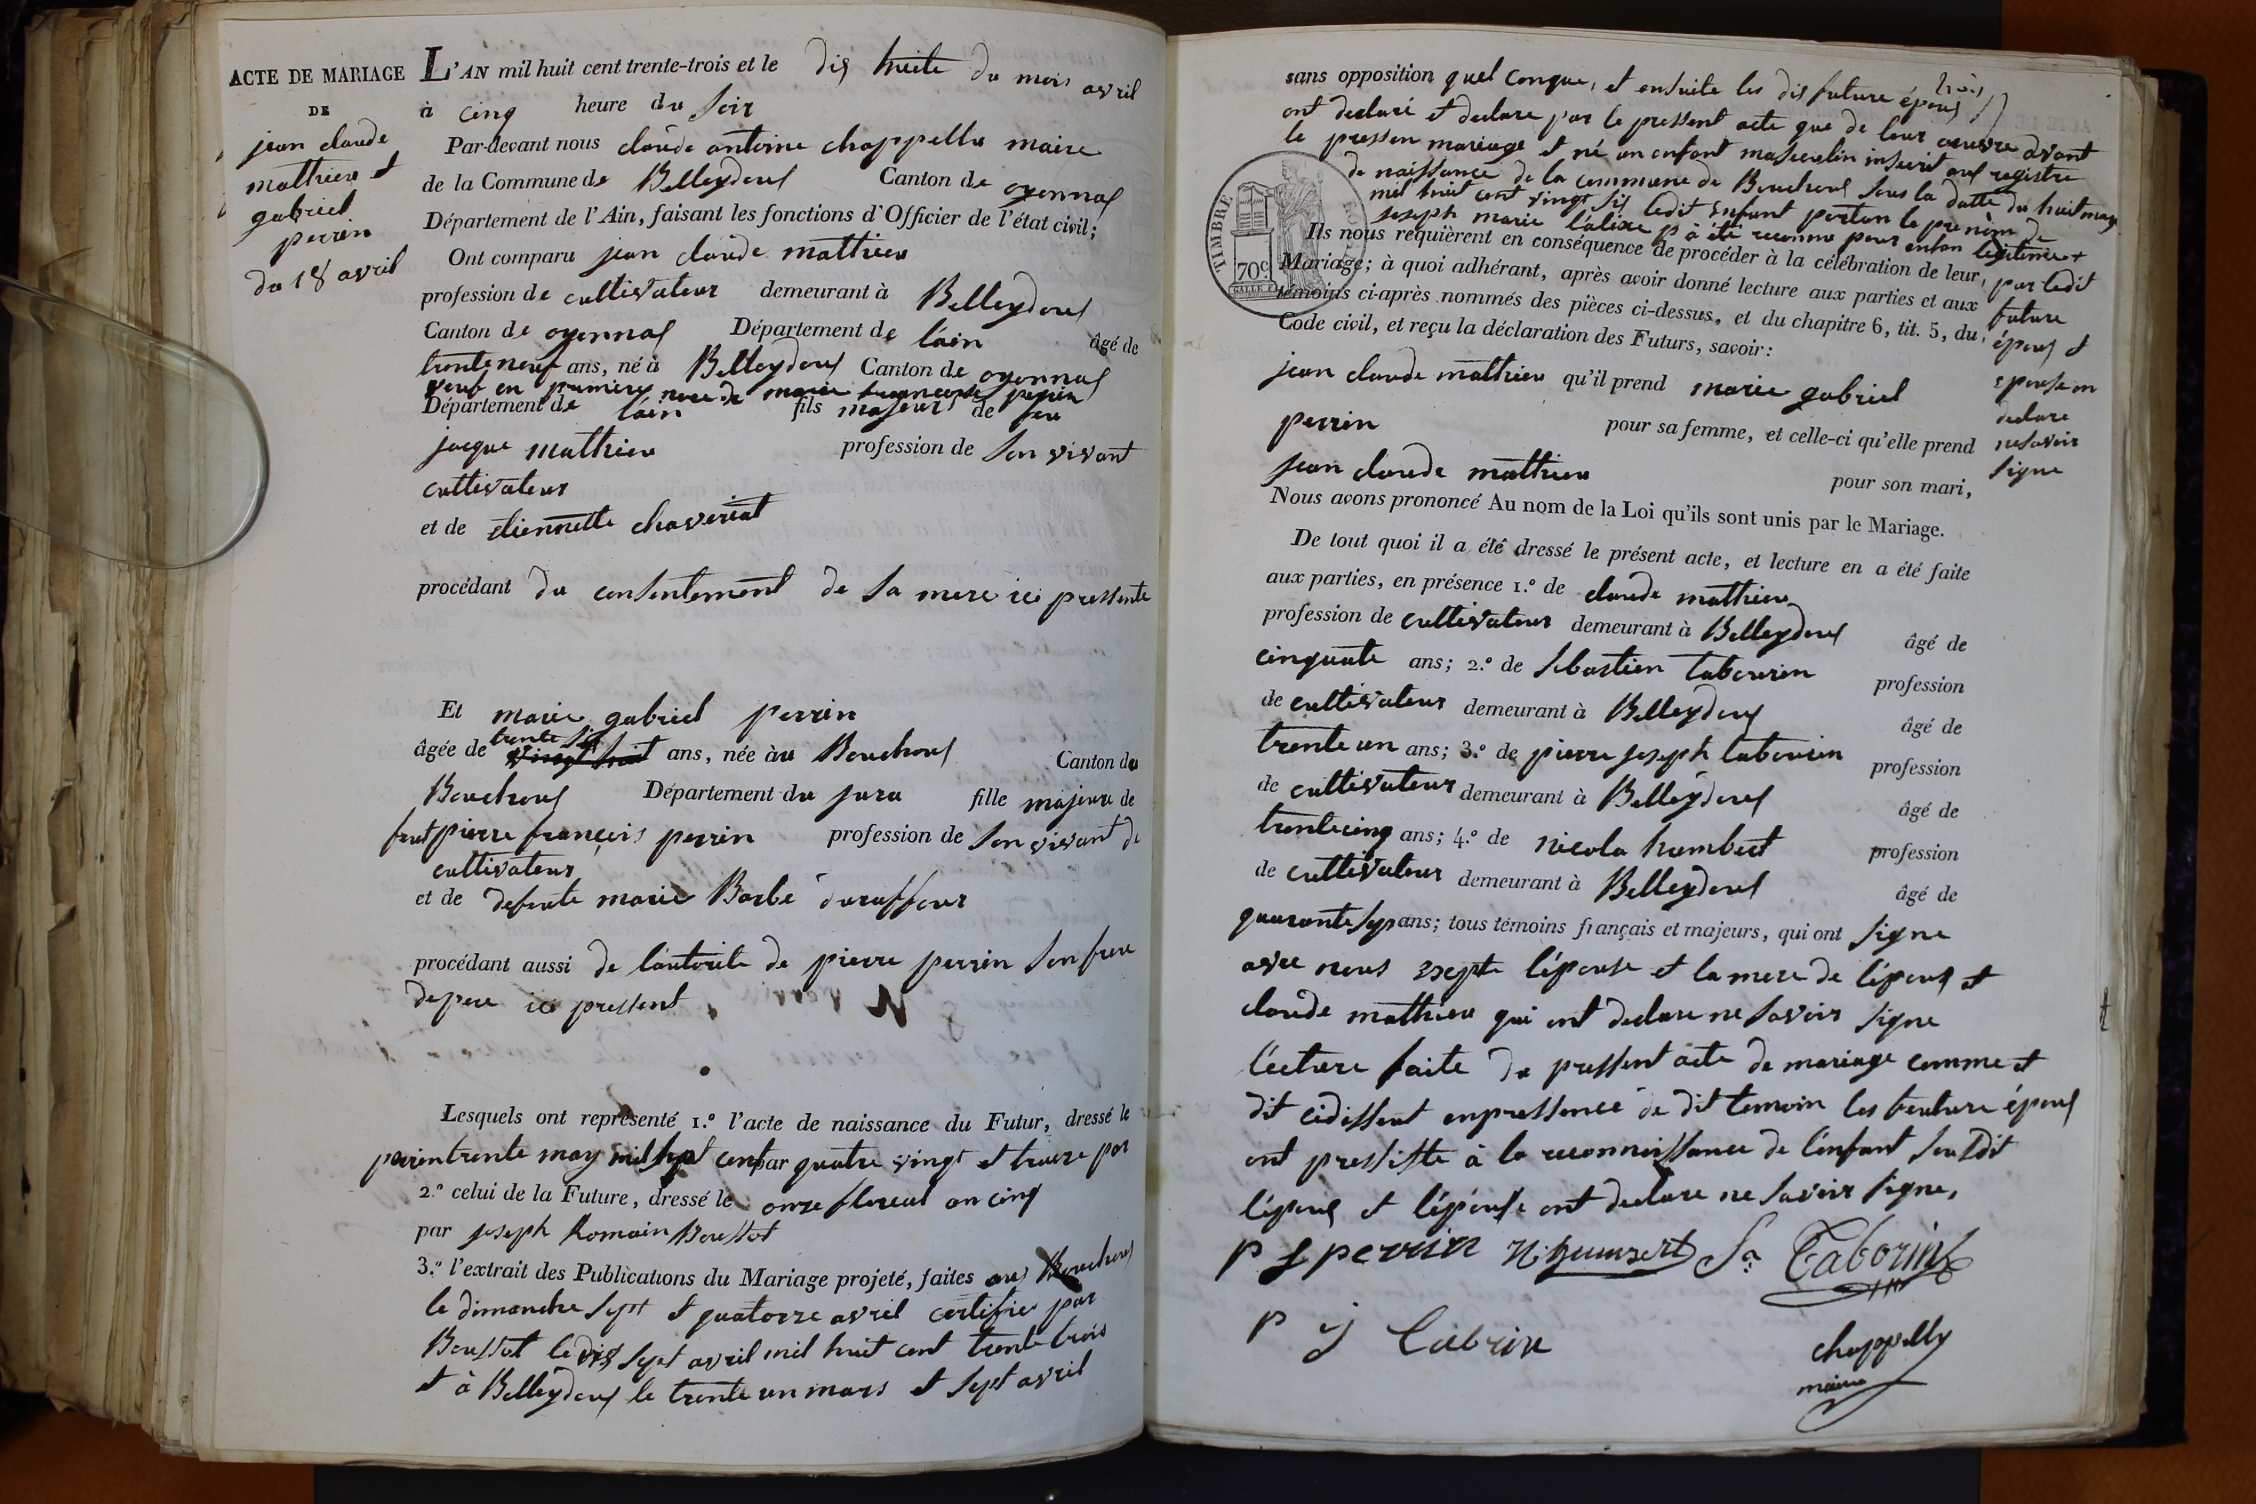 ACTE DE MARIAGE
DE
jean claude
mathieu et
gabriel
perrin
du 18 avril
L'AN mil huit cent trente-trois et le dix huite du mois avril
à cinq heure du soir
Par-devant nous claude antoine chappellu maire
de la Commune de Belleydoux Canton de oyonnax
Département de l'Ain, faisant les fonctions d'Officier de l'état civil;
Ont comparu jean claude mathieu
profession de cultivateur demeurant à Belleydoux
Canton de oyonnax Département de l'ain âgé de
trente neuf ans, né à Belleydoux Canton de oyonnax
veuf en premiere noce de marie francoise perrin
Département de l'ain fils majeur de feu
jacque mathieu profession de son vivant
cultivateur
et de etiennette chaveriat
procédant du consentement de sa mere ici pressente
Et marie gabriel perrin
trente six
âgée de vingt huit ans, née au Bouchoux Canton du
Bouchoux Département du jura fille majeure de
feut pierre françois perrin profession de son vivant de
cultivateur
et de defunte marie Barbe duraffour
procédant aussi de l'autorite de pierre perrin son frere
de pere ici pressent
Lesquels ont représenté 1.º l'acte de naissance du Futur, dressé le
trente may mil sept cent par quatre vingt et treize par
2.º celui de la Future, dressé le onze floreal an cinq
par joseph Romain Boussot
3.º l'extrait des Publications du Mariage projeté, faites aux Bouchoux
le dimanche sept et quatorze avril certifie par
Boussot le dix sept avril mil huit cent trente trois
et à Belleydoux le trente un mars et sept avril
sans opposition quel conque, et ensuite les dis future époux
ont declaré et declare par le pressent acte que de leur oeuvre avant
le pressen mariage et né un enfant masculin inscrit aux registre
de naissance de la commune de Bouchoux sous la datte du huit may
mil huit cent vingt six ledit enfant portan le prenòm de
joseph marie l'alixe à été reconnu pour enfan legitime +
par ledit
future
époux et
epouse on
declare
ne savoir
signe
TIMBRE ROYAL
70c
Ils nous requièrent en conséquence de procéder à la célébration de leur
Mariage; à quoi adhérant, après avoir donné lecture aux parties et aux
témoins ci-après nommés des pièces ci-dessus, et du chapitre 6, tit. 5, du
Code civil, et reçu la déclaration des Futurs, savoir:
jean claude mathieu qu'il prend marie gabriel
perrin pour sa femme, et celle-ci qu'elle prend
jean claude mathieu pour son mari,
Nous avons prononcé Au nom de la Loi qu'ils sont unis par le Mariage.
De tout quoi il a été dressé le présent acte, et lecture en a été faite
aux parties, en présence 1.º de claude mathieu
profession de cultivateur demeurant à Belleydoux âgé de
cinquate ans; 2.º de sebastien tabourin profession
de cultivateur demeurant à Belleydoux âgé de
trente un ans; 3.º de pierre joseph tabourin profession
de cultivateur demeurant à Belleydoux âgé de
trente cinq ans; 4.º de nicola humbert profession
de cultivateur demeurant à Belleydoux âgé de
quarante sep ans; tous témoins français et majeurs, qui ont signe
avec nous exepte l'épouse et la mere de l'époux et
claude mathieu qui ont declare ne savoir signe
lecture faite du pressent acte de mariage comme et
dit cidessent enpressence de dit temoin les feuture époux
ont pressiste à la reconnoissance de l'enfant susdit
l'epoux et l'épouse ont declare ne savoir signe,
p f perrin N humbert S.n Taborin
P j tabrin
chappelly
maire